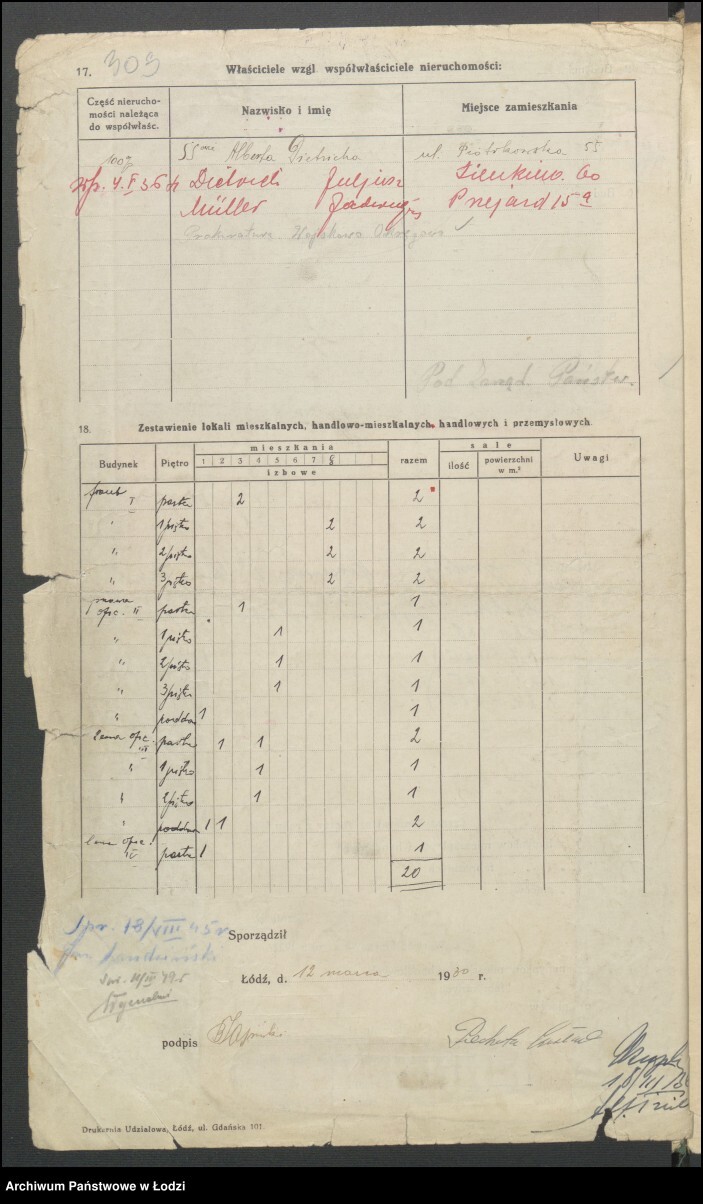 17. 303 Właściciele wzgl. współwłaściciele nieruchomości:
Część nierucho-
mości należąca
do współwłaśc.
Nazwisko i imię
Miejsce zamieszkania
Alberta Dietricha ul. Piotrkowska 55
Juljusz Sienkiew. 60
Müller Jadwiga Przejazd 15a
Pod Zarząd Państw.
18. Zestawienie lokali mieszkalnych, handlowo-mieszkalnych, handlowych i przemysłowych.
Budynek Piętro mieszkania razem sale Uwagi
1 2 3 4 5 6 7 8
izbowe
ilość powierzchni
w m.²
front I parter 2 2
" 1 piętro 2 2
" 2 piętro 2 2
" 3 piętro 2 2
prawa
ofic. II parter 1 1
" 1 piętro 1 1
" 2 piętro 1 1
" 3 piętro 1 1
" poddasz 1 1
lewa ofic.
III parter 1 1 2
" 1 piętro 1 1
" 2 piętro 1 1
" poddasz 1 1 2
lewa ofic.
IV parter 1 1
20
Spr. 18/VIII 45 r
Sporządził
Łódź, d. 12 marca 1930 r.
podpis
Drukarnia Udziałowa, Łódź, ul. Gdańska 101.
Archiwum Państwowe w Łodzi